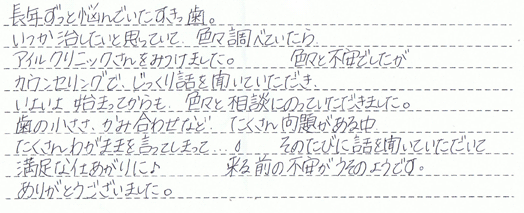 長年ずっと悩んでいたすきっ歯。
いつか治したいと思っていて、色々調べていたら
アイルクリニックさんをみつけました。 色々と不安でしたが
カウンセリングで、じっくり話を聞いていただき、
いよいよ始まってからも、色々と相談にのっていただきました。
歯の小ささ、かみ合わせなど、たくさん問題がある中
たくさんわがままを言ってしまって…。 そのたびに話を聞いていただいて
満足な仕あがりに♪ 来る前の不安がうそのようです。
ありがとうございました。